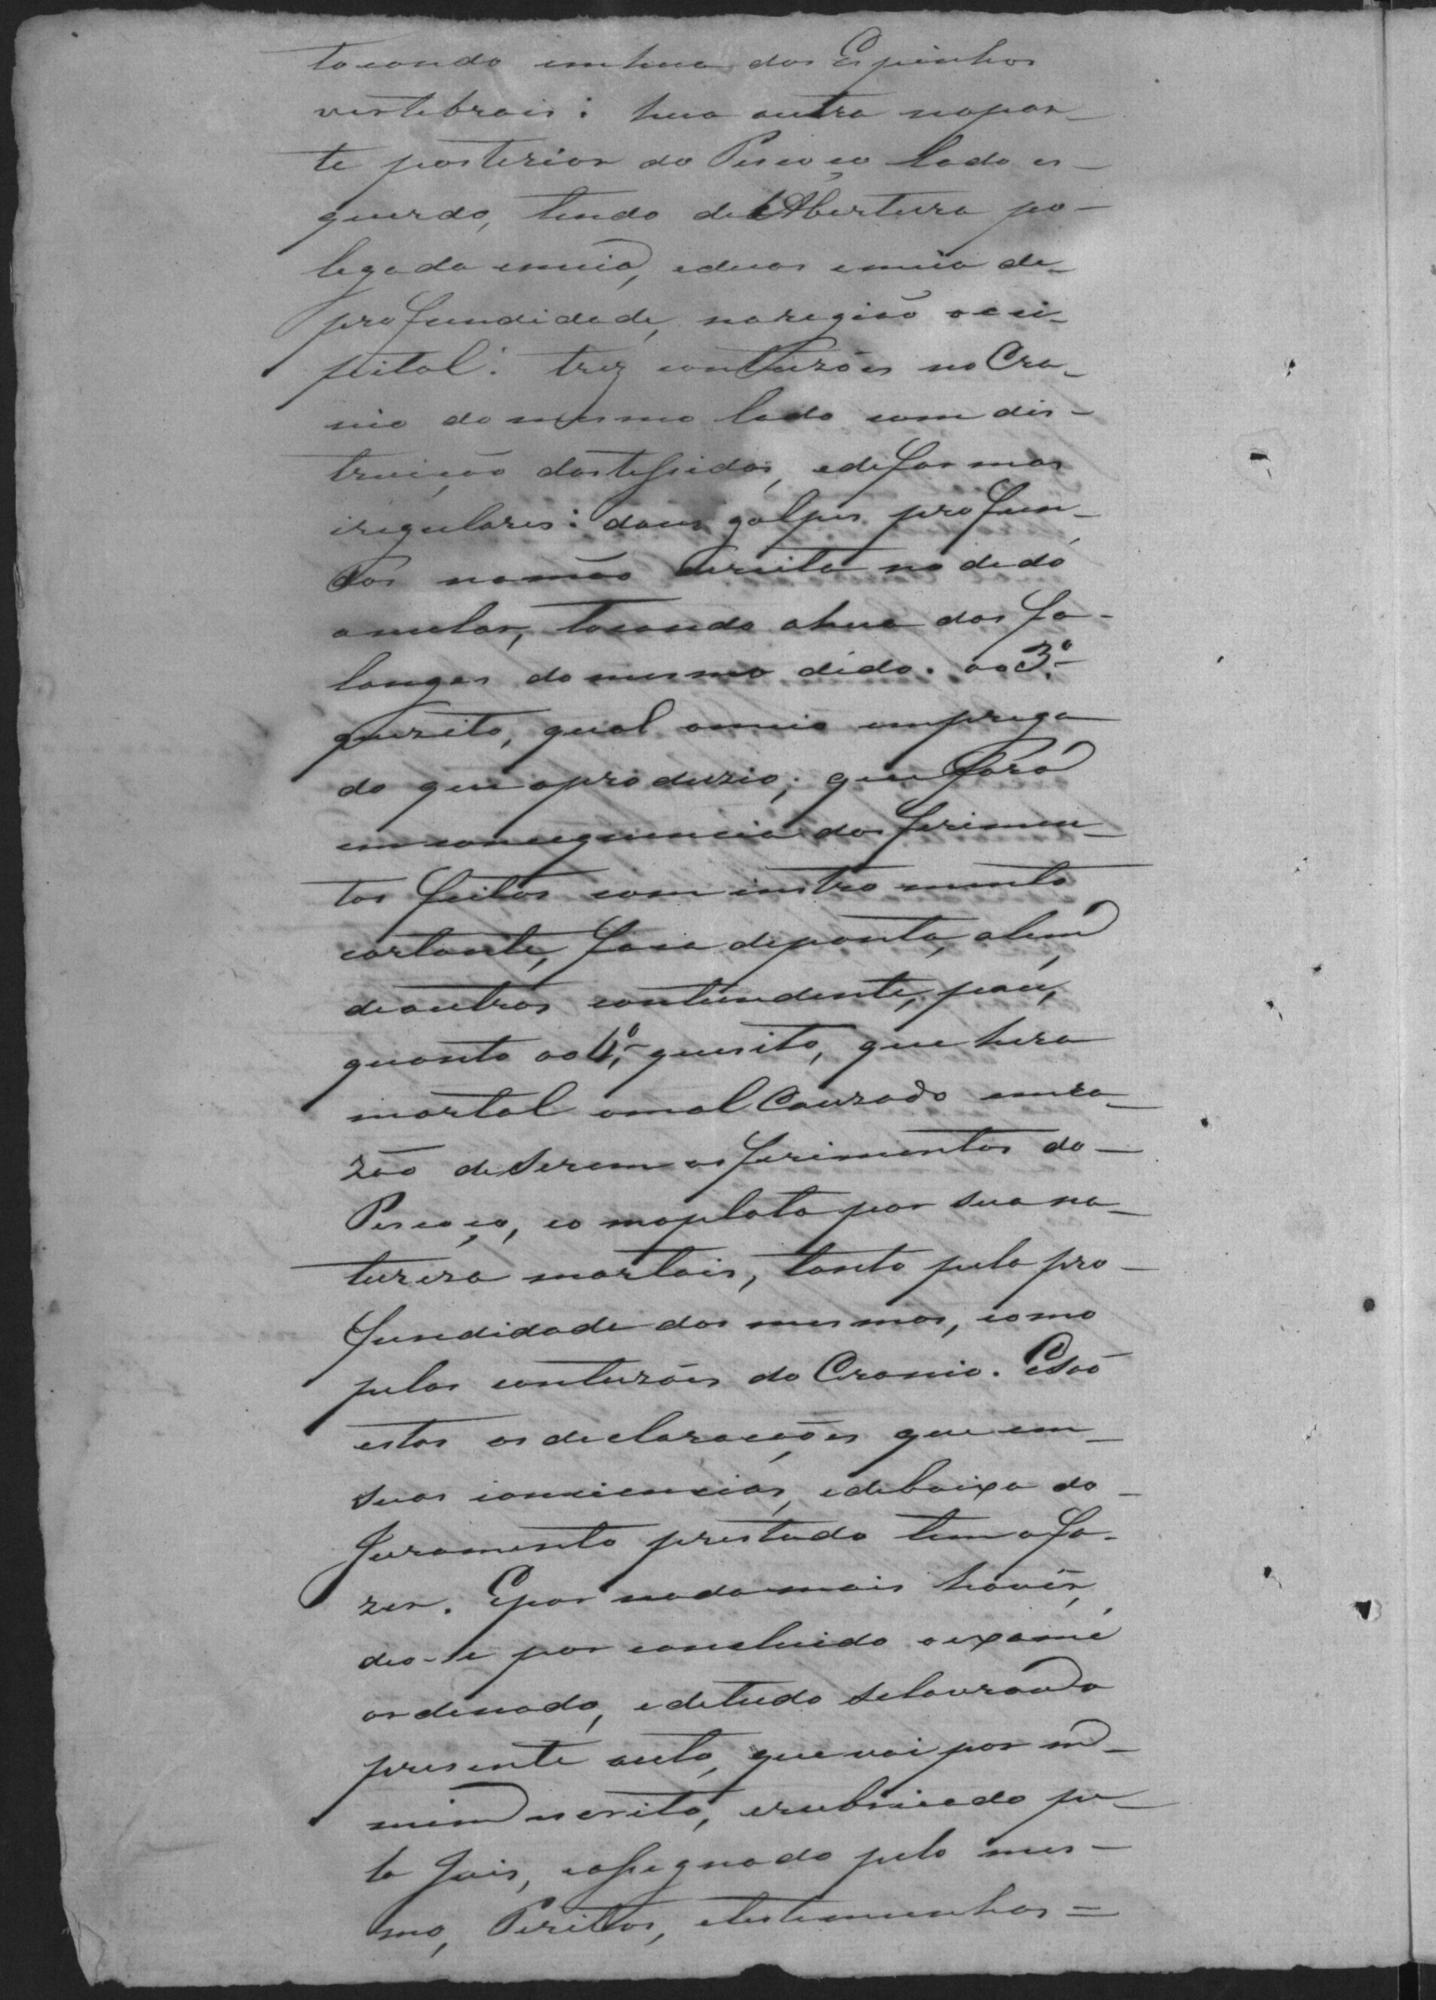 tocando em hua dos Espinhos
vertebrais: hua outra napar-
te posterior do Pescoço lado es-
querdo, tendo de Abertura po-
legada emeia, eduas emeia de-
profundidade, naregião occi-
pital: trez contuzões no Cra-
nio do mesmo lado com dis-
truição dostessidos, edeformas
iregulares: dous golpes profun-
dos namão direita no dedo
anular, tocando ahua das fa-
langes do mesmo dedo. ao 3º-
quezito, qual omeio emprega
do que oproduzio; que fora
em consequencia dos ferimen-
tos feitos com instromento
cortante, faca deponta, alem
deoutros contundente, páu,
quanto ao 4º- quesito, que hera
mortal omal Cauzado emra-
zão deserem os ferimentos do-
Pescoço, eo maplata por sua na-
tureza mortais, tanto pela pro-
fundidade dos mesmos, como
pelas contuzões do Cranio. Esão
estas as declarações que em-
suas consciencias, edebaixo do-
Juramento prestado tem afa-
zer. Epor nada mais havêr,
deo-se por concluido o exame
ordenado, edetudo selavrou o
presente auto, que vai por m-
mim escrito, erubricado pe-
lo Juis, eassegnado pelo mes-
mo, Peritos, etestemunhas =